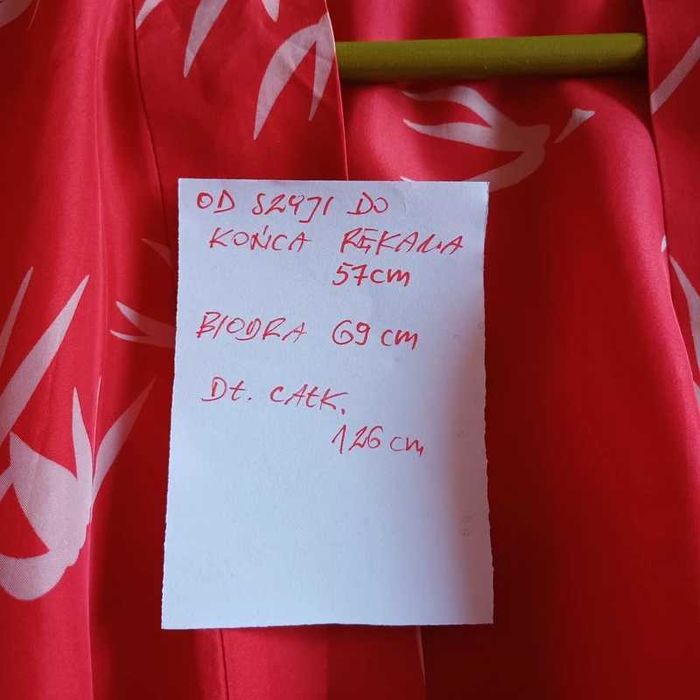 OD SZYJI DO
KOŃCA RĘKAWA
57cm
BIODRA 69 cm
Dł. CAŁK.
126 cm